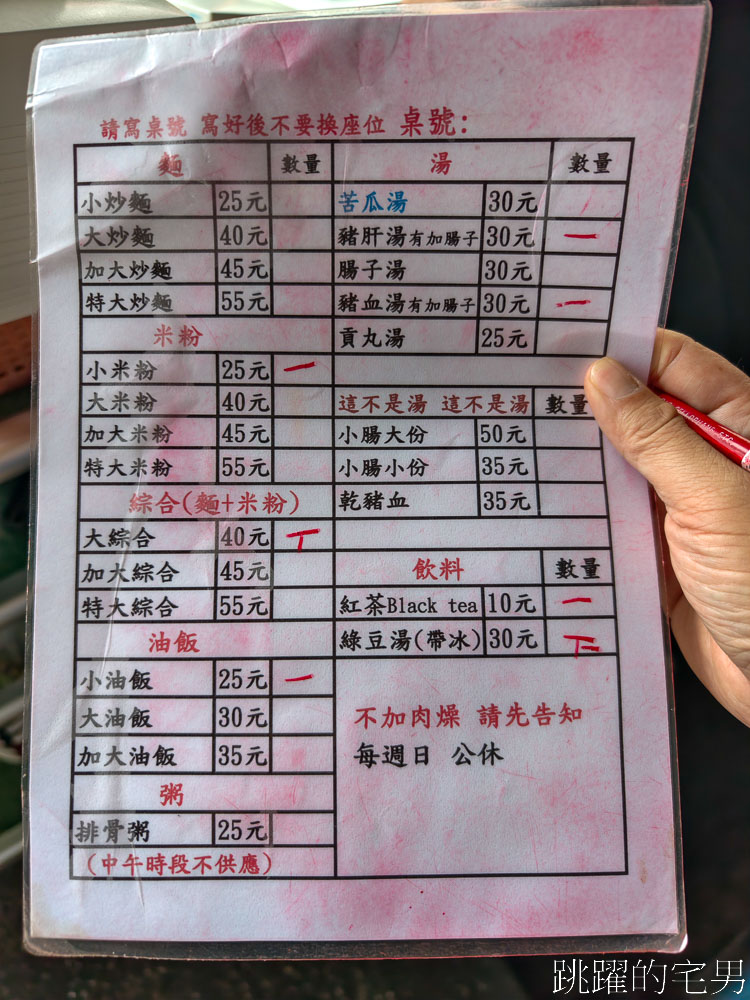 請寫桌號 寫好後不要換座位 桌號:
麵 數量
小炒麵 25元
大炒麵 40元
加大炒麵 45元
特大炒麵 55元
米粉
小米粉 25元 一
大米粉 40元
加大米粉 45元
特大米粉 55元
綜合(麵+米粉)
大綜合 40元 丅
加大綜合 45元
特大綜合 55元
油飯
小油飯 25元 一
大油飯 30元
加大油飯 35元
粥
排骨粥 25元
(中午時段不供應)
湯 數量
苦瓜湯 30元
豬肝湯有加腸子 30元 一
腸子湯 30元
豬血湯有加腸子 30元 一
貢丸湯 25元
這不是湯 這不是湯 數量
小腸大份 50元
小腸小份 35元
乾豬血 35元
飲料 數量
紅茶Black tea 10元 一
綠豆湯(帶冰) 30元
不加肉燥 請先告知
每週日 公休
跳躍的宅男